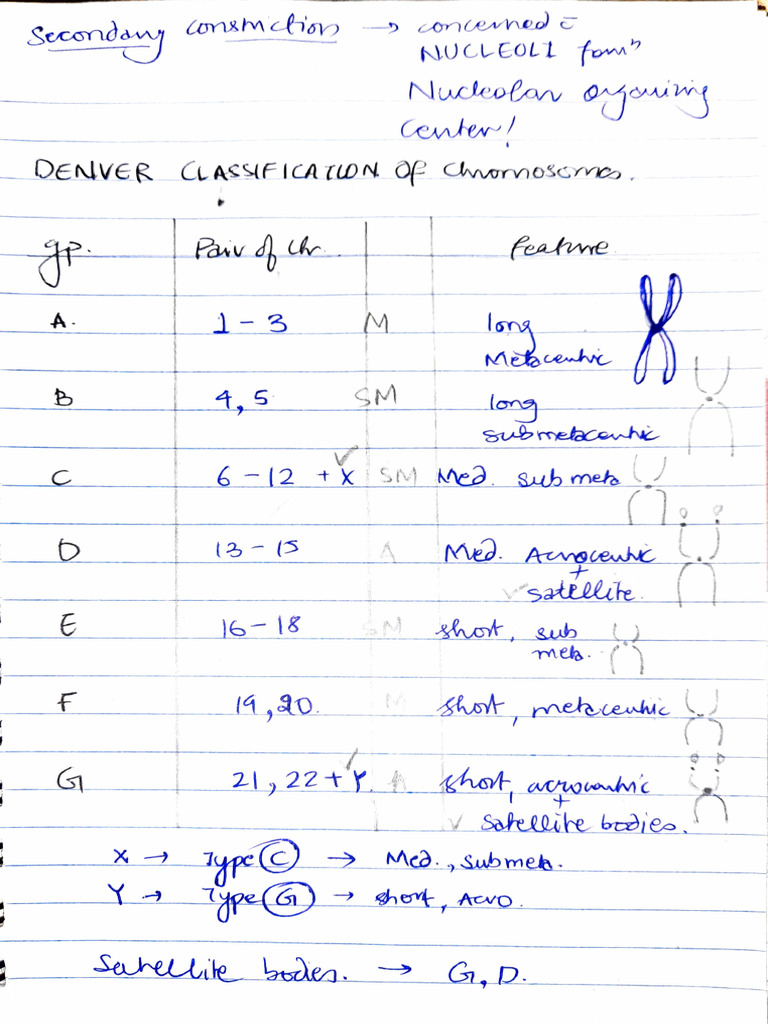 Secondary constriction → concerned c̄
NUCLEOLI formⁿ
Nucleolar organizing
center!
DENVER CLASSIFICATION Of Chromosomes.
gp. Pair of Chr. feature
A. 1 - 3 M long
Metacentric
B 4, 5 SM long
submetacentric
C 6 - 12 + X SM Med. sub meta
D 13 - 15 A Med. Acrocentric
+
satellite.
E 16 - 18 SM short, sub
meta.
F 19, 20. M short, metacentric
G 21, 22 + Y. A short, acrocentric
+
satellite bodies.
X → Type C → Med., submeta.
Y → Type G → short, Acro.
Satellite bodies. → G, D.